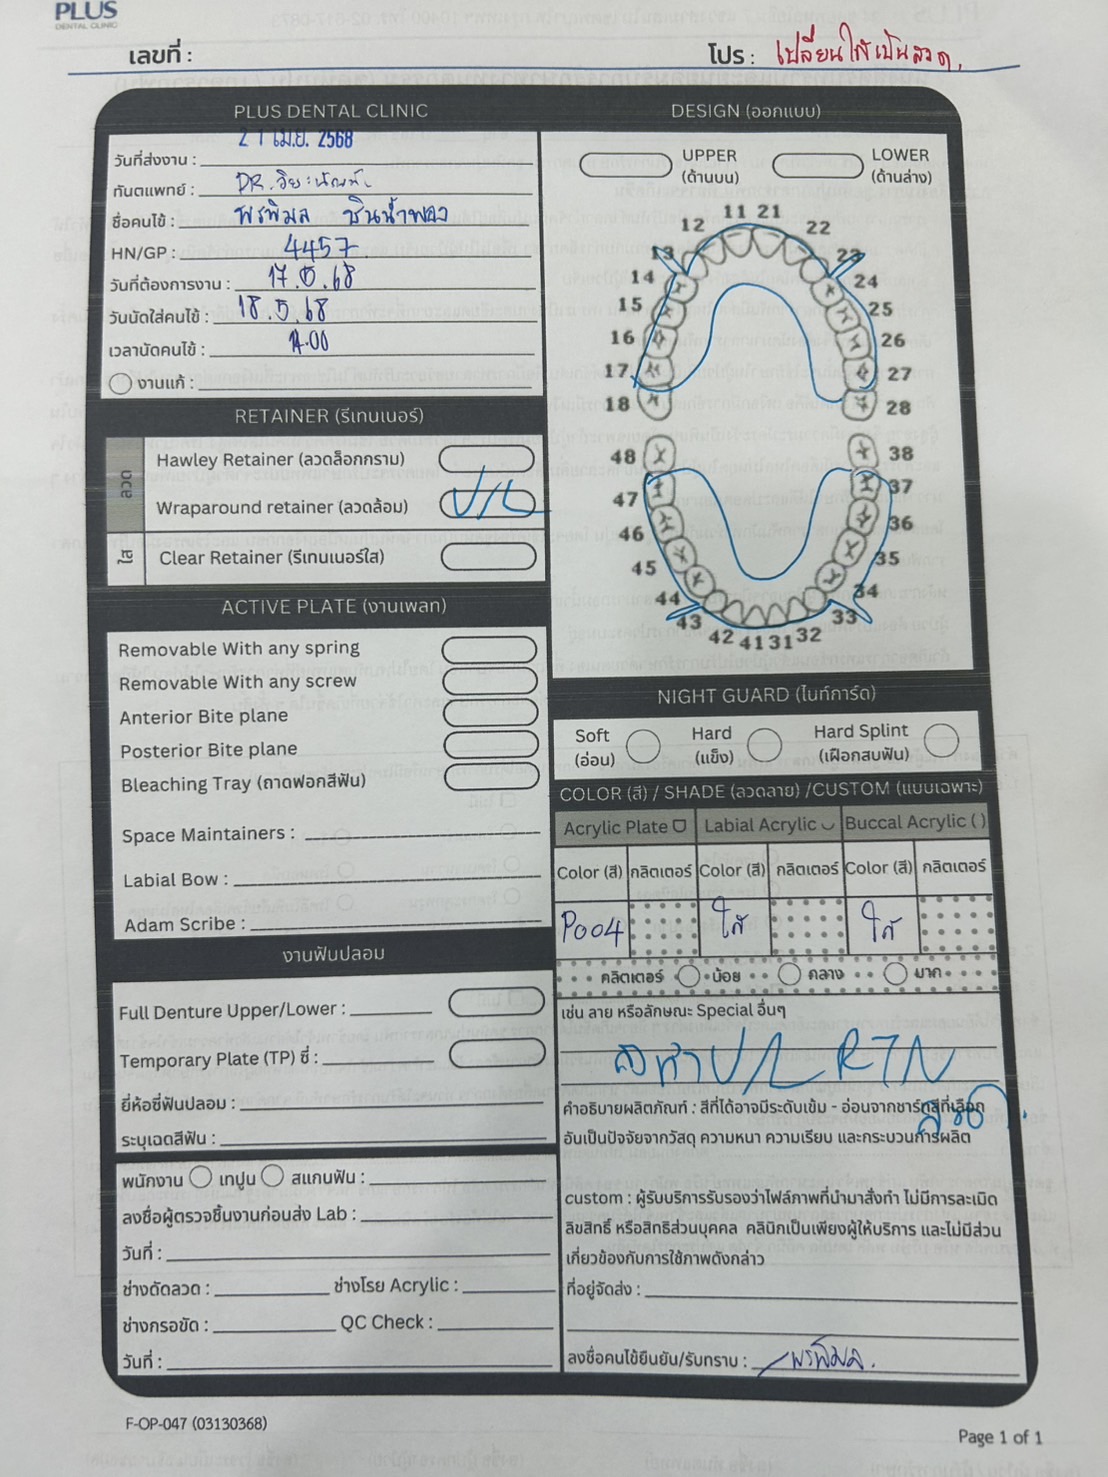 PLUS
DENTAL CLINIC
เลขที่ :
โปร : เปลี่ยนใสเป็นลวด.
PLUS DENTAL CLINIC
วันที่ส่งงาน : 21 เม.ย. 2568
ทันตแพทย์ : DR.
ชื่อคนไข้ : พรพิมล ชินน้ำพอง
HN/GP : 4457
วันที่ต้องการงาน : 17.5.68
วันนัดใส่คนไข้ : 18.5.68
เวลานัดคนไข้ : 11.00
งานแก้ :
RETAINER (รีเทนเนอร์)
ลวด
Hawley Retainer (ลวดล็อกกราม)
Wraparound retainer (ลวดล้อม) U/L
ใส
Clear Retainer (รีเทนเนอร์ใส)
ACTIVE PLATE (งานเพลท)
Removable With any spring
Removable With any screw
Anterior Bite plane
Posterior Bite plane
Bleaching Tray (ถาดฟอกสีฟัน)
Space Maintainers :
Labial Bow :
Adam Scribe :
งานฟันปลอม
Full Denture Upper/Lower :
Temporary Plate (TP) ซี่ :
ยี่ห้อซี่ฟันปลอม :
ระบุเฉดสีฟัน :
พนักงาน เทปูน สแกนฟัน :
ลงชื่อผู้ตรวจชิ้นงานก่อนส่ง Lab :
วันที่ :
ช่างดัดลวด : ช่างโรย Acrylic :
ช่างกรอขัด : QC Check :
วันที่ :
DESIGN (ออกแบบ)
UPPER (ด้านบน)
LOWER (ด้านล่าง)
11 21
12 22
13 23
14 24
15 25
16 26
17 27
18 28
48 38
47 37
46 36
45 35
44 34
43 33
42 41 31 32
NIGHT GUARD (ไนท์การ์ด)
Soft (อ่อน)
Hard (แข็ง)
Hard Splint (เฝือกสบฟัน)
COLOR (สี) / SHADE (ลวดลาย) /CUSTOM (แบบเฉพาะ)
Acrylic Plate Labial Acrylic Buccal Acrylic ( )
Color (สี) กลิตเตอร์ Color (สี) กลิตเตอร์ Color (สี) กลิตเตอร์
P004 ใส ใส
กลิตเตอร์ น้อย กลาง มาก
เช่น ลาย หรือลักษณะ Special อื่นๆ
U/L RTN
ลวด.
คำอธิบายผลิตภัณฑ์ : สีที่ได้อาจมีระดับเข้ม - อ่อนจากชาร์ทสีที่เลือก
อันเป็นปัจจัยจากวัสดุ ความหนา ความเรียบ และกระบวนการผลิต
custom : ผู้รับบริการรับรองว่าไฟล์ภาพที่นำมาสั่งทำ ไม่มีการละเมิด
ลิขสิทธิ์ หรือสิทธิส่วนบุคคล คลินิกเป็นเพียงผู้ให้บริการ และไม่มีส่วน
เกี่ยวข้องกับการใช้ภาพดังกล่าว
ที่อยู่จัดส่ง :
ลงชื่อคนไข้ยืนยัน/รับทราบ : พรพิมล.
F-OP-047 (03130368)
Page 1 of 1